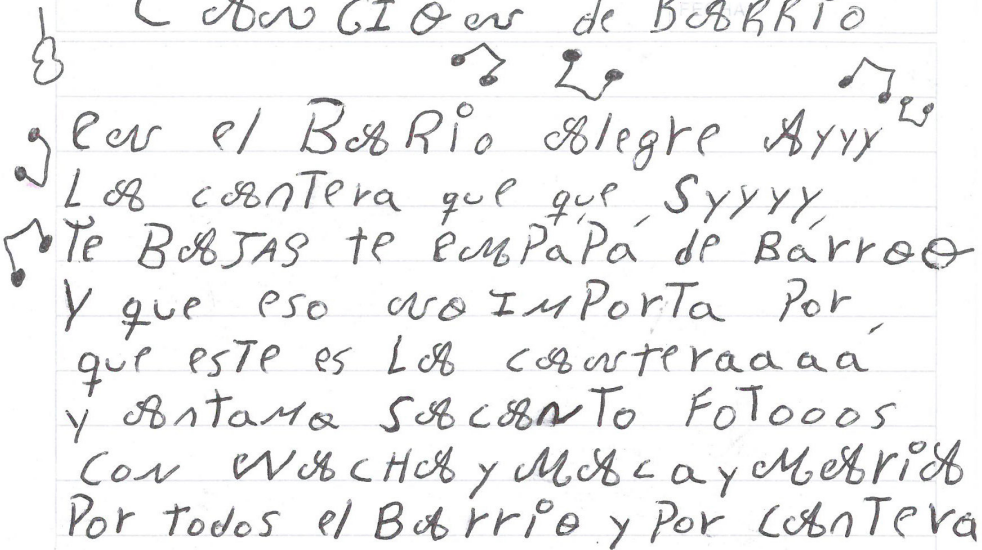 CANCIOen de BARRIO
en el BARio Alegre Ayyy
LA canTera que que Syyyy,
Te BAJAS te emPáPá de Bárroo
Y que eso no IMPorTa Por
que esTe es LA canteraaaá
y AntaMa SACANTo FoTooos
Con NACHA y MACa y MAriA
Por todos el Barrio y Por CAnTera